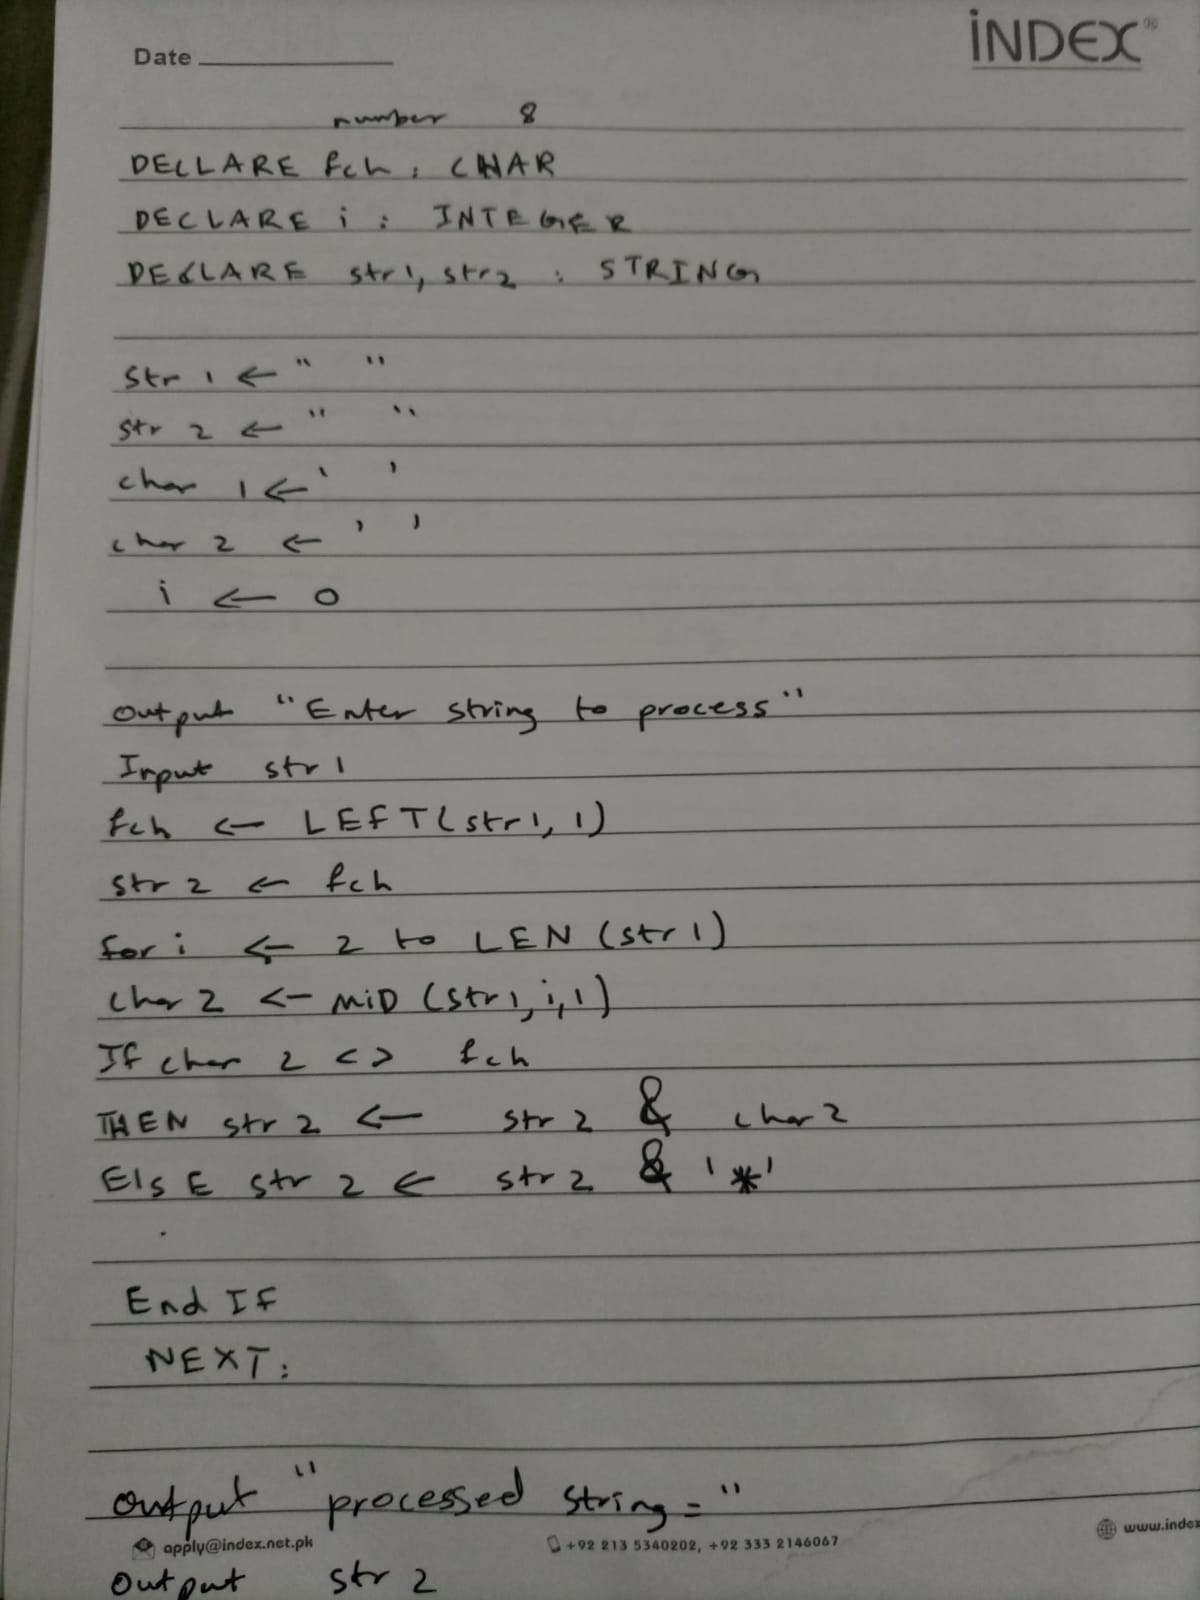 Date
INDEX®
number 8
DECLARE fch : CHAR
DECLARE i : INTEGER
DECLARE str1, str2 : STRING
str 1 ← " "
str 2 ← " "
char 1 ← ' '
char 2 ← ' '
i ← 0
Output "Enter string to process"
Input str 1
fch ← LEFT(str1, 1)
str 2 ← fch
for i ← 2 to LEN (str1)
char 2 ← MiD (str1, i, 1)
If char 2 <> fch
THEN str 2 ← str 2 & char 2
ElsE str 2 ← str 2 & '*'
End IF
NEXT :
Output "processed string = "
apply@index.net.pk +92 213 5340202, +92 333 2146067 www.index
Output str 2